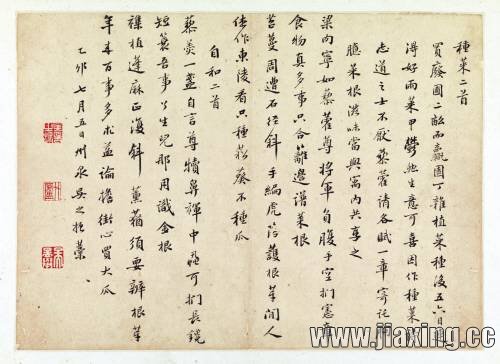 種菜二首
買廢園二畝而羸園丁雜植菜種後五六日
得好雨菜甲鬱然生意可喜因作種菜
志道之士不厭藜藿請各賦一章寄託
菜根滋味當與寓內共享之
梁肉寧如藜藿尊將軍負腹手空捫憲
食物真多事只合籬邊譜菜根
菩蔓周遭石徑斜手編虎落護根芽閒人
佳作東陵看只種菘葵不種瓜
自和二首
藜羹一盌自言尊犢鼻褌中蝨可捫長鑱
短簑吾事了生兒那用識金根
襍植蓬麻正復斜薰蕕須要辨根芽
年來百事多求益論擔街心買大瓜
乙卯七月五日州泉吳之振藁
www.jiaxing.cc